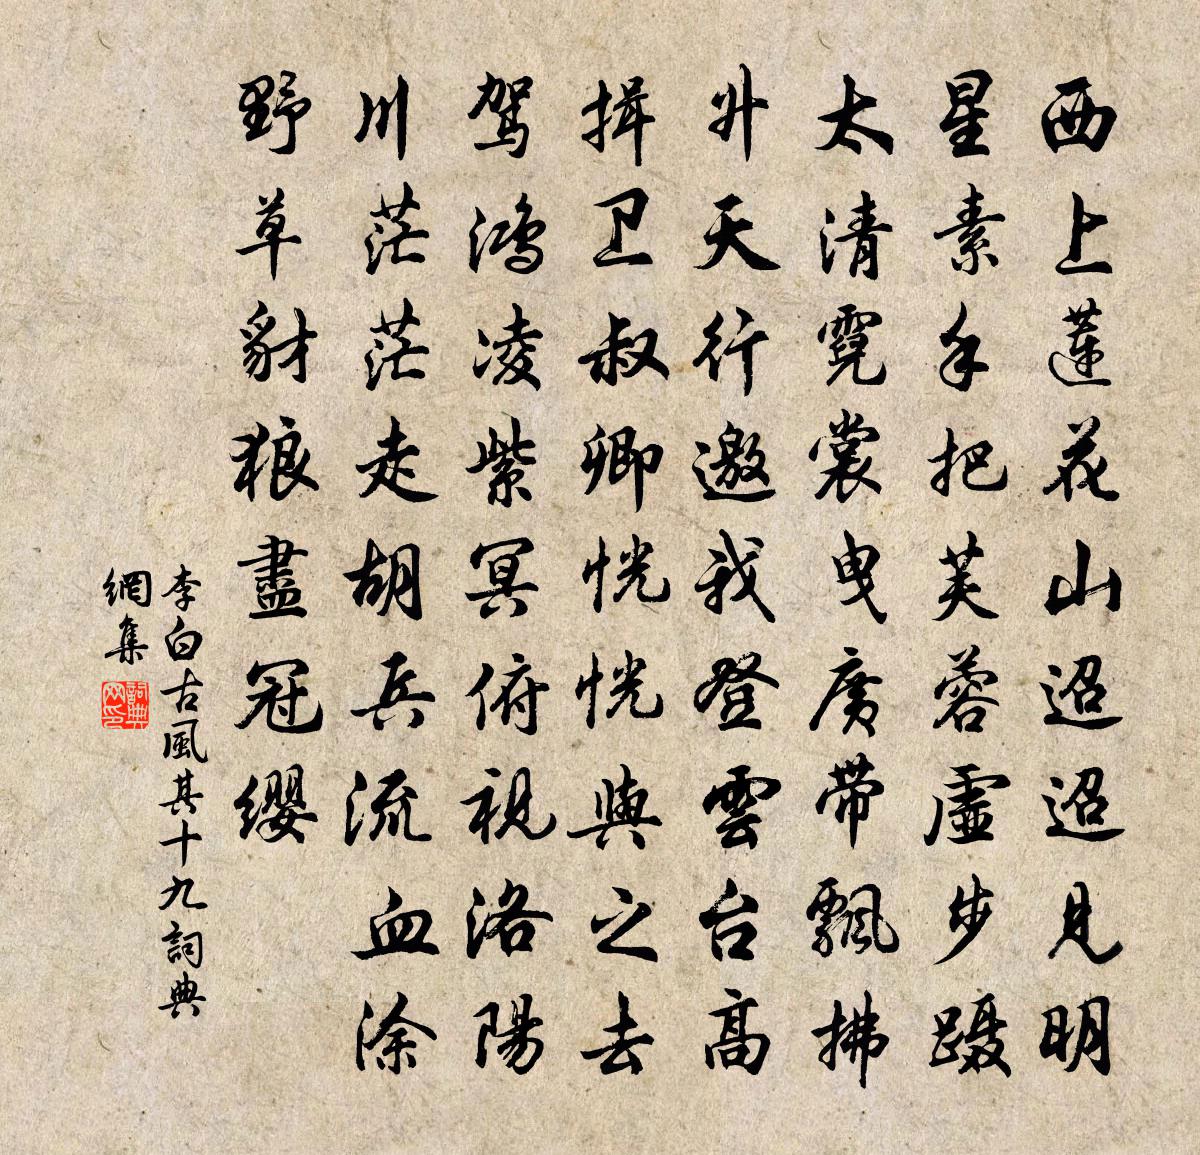 西上莲花山迢迢見明
星素手把芙蓉虛步蹑
太清霓裳曳廣带飄拂
升天行邀我登雲台高
揖卫叔卿恍恍與之去
驾鸿凌紫冥俯視洛陽
川茫茫走胡兵流血涂
野草豺狼盡冠缨
李白古風其十九詞典
網集
詞典網印